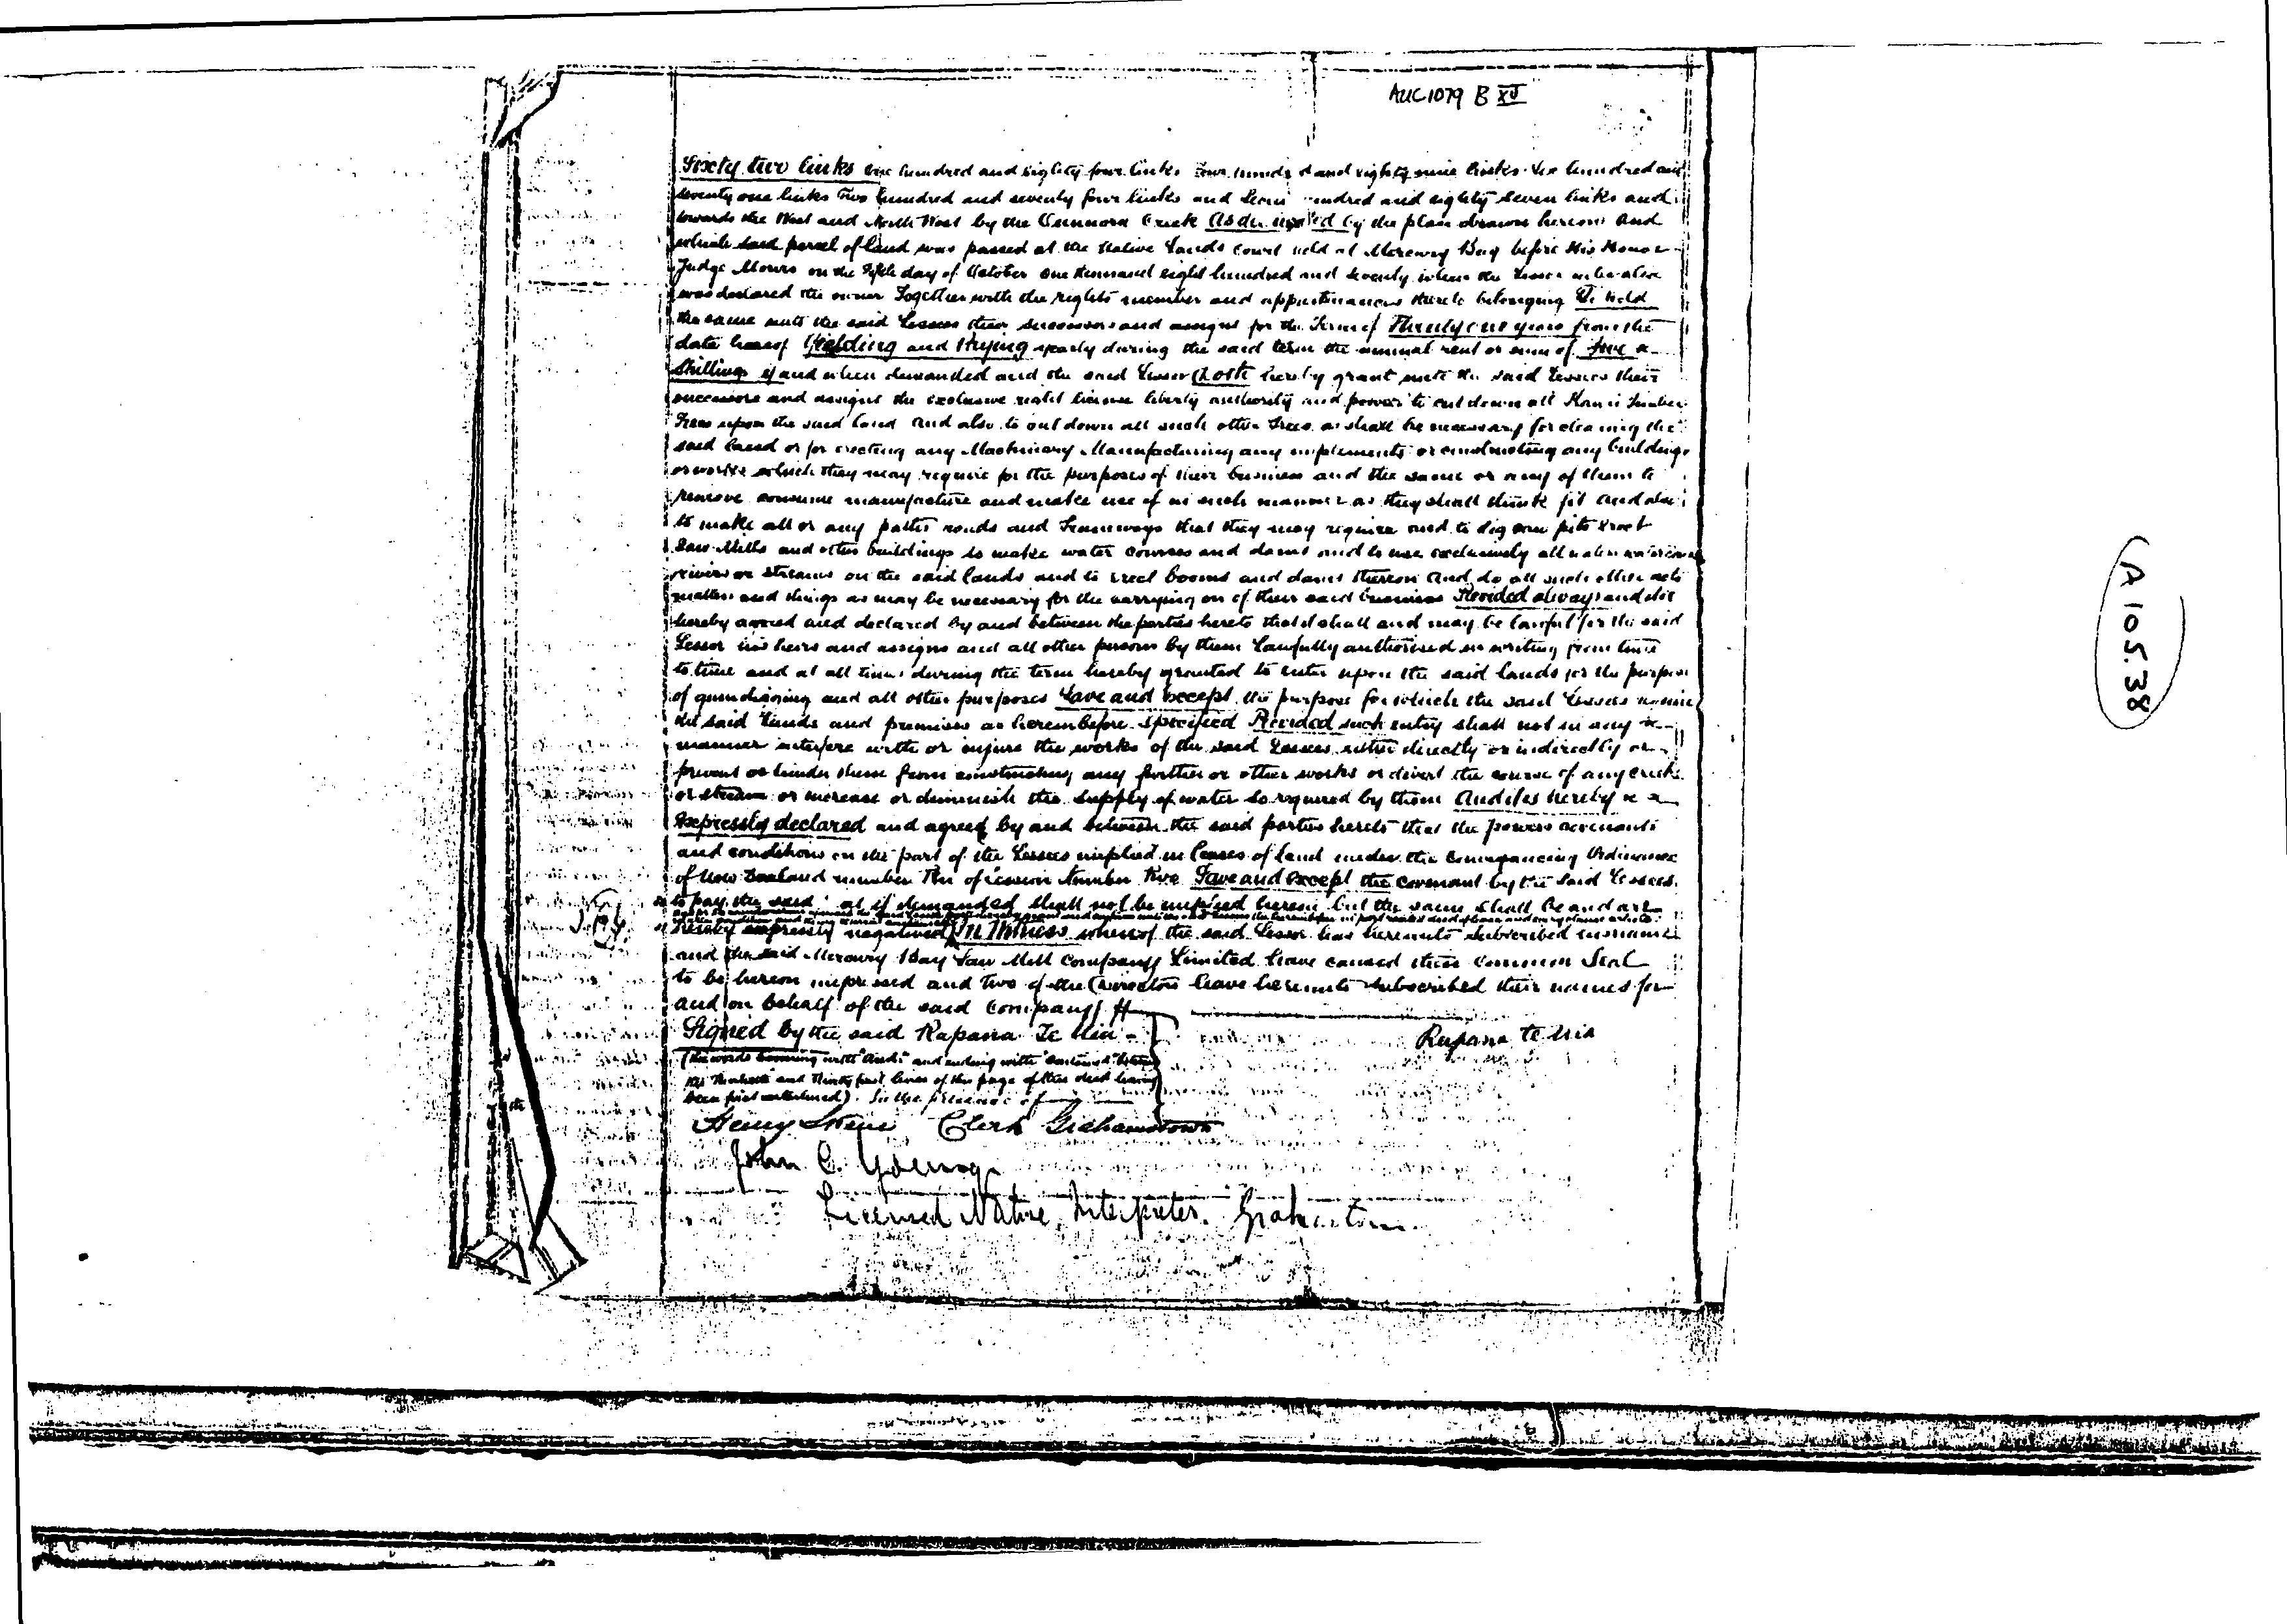 AUC 1079 B XV
Sixty two links one hundred and eighty four links four hundred and eighty nine links six hundred and
seventy one links two hundred and seventy four links and hundred and eighty seven links and
towards the West and North West by the Creek As delineated by the plan drawn hereon And
which said parcel of land was passed at the Native Lands Court held at Mercury Bay before His Honor
Judge on the Fifth day of October One thousand eight hundred and seventy when the Lessor
was declared the owner Together with the rights member and appurtenances thereto belonging To hold
the same unto the said Lessees their successors and assigns for the Term of years from the
date hereof Yielding and Paying yearly during the said term the annual rent or sum of
Shillings if and when demanded and the said Lessor Doth hereby grant unto the said Lessees their
successors and assigns the exclusive right license liberty authority and power to cut down all Kauri Timber
Trees upon the said land And also to cut down all such other Trees as shall be necessary for clearing the
said land or for erecting any Machinery Manufacturing any implements or constructing any buildings
or works which they may require for the purposes of their business and the same or any of them to
remove convert manufacture and make use of in such manner as they shall think fit And also
to make all or any paths roads and Tramways that they may require and to dig saw pits erect
Saw Mills and other buildings to make water courses and dams and to use exclusively all
rivers or streams on the said lands and to erect booms and dams thereon And do all such other acts
matters and things as may be necessary for the carrying on of their said business Provided always and it is
hereby agreed and declared by and between the parties hereto that it shall and may be lawful for the said
Lessor his heirs and assigns and all other persons by them lawfully authorised in writing from time
to time and at all times during the term hereby granted to enter upon the said lands for the purpose
of gumdigging and all other purposes Save and except the purpose for which the said Lessees
the said Lands and premises as hereinbefore specified Provided such entry shall not in any
manner interfere with or injure the works of the said Lessees either directly or indirectly or
prevent or hinder them from constructing any further or other works or divert the course of any creek
or stream or increase or diminish the supply of water so required by them And it is hereby
expressly declared and agreed by and between the said parties hereto that the powers covenants
and conditions on the part of the Lessees implied in leases of land under the Conveyancing Ordinance
of New Zealand number Ten of Session Number Two Save and except the covenant by the said Lessees
to pay the said if demanded shall not be implied herein but the same shall be and are
hereby expressly negatived In Witness whereof the said Lessor has hereunto subscribed his name
and the said Mercury Bay Saw Mill Company Limited have caused their Common Seal
to be hereon impressed and Two of the Directors have hereunto subscribed their names for
and on behalf of the said Company
Signed by the said Rapana Te
Rapana te
(the words beginning with "And" and ending with "contained" between
the Thirtieth and Thirty first lines of this page of this deed having
been first interlined). In the presence of
Henry Clerk Grahamstown
John C. Young
Licensed Native Interpreter. Grahamstown.
A 105.38